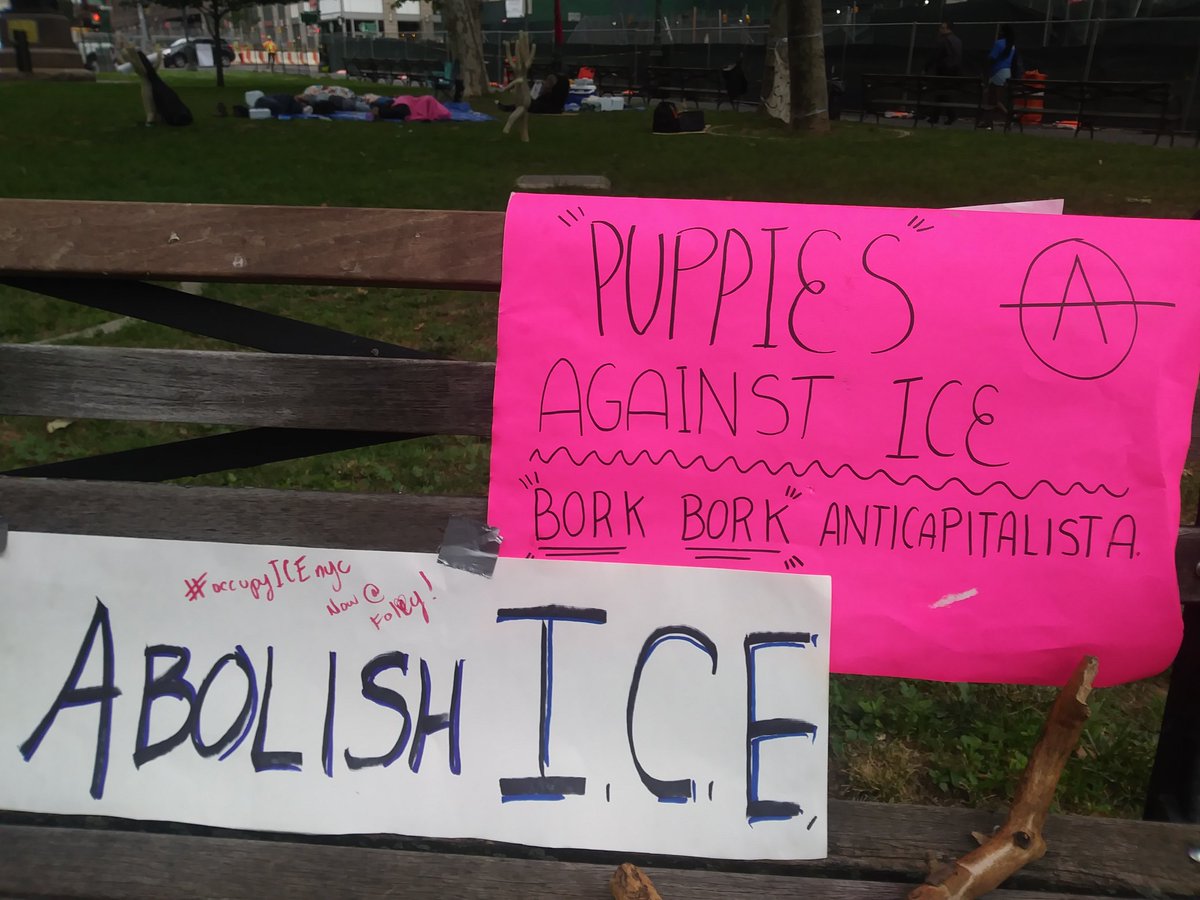 "PUPPIES"
AGAINST ICE
"BORK BORK" ANTICAPITALISTA.
A
#occupyICEnyc
Now @
Foley!
ABOLISH I.C.E.